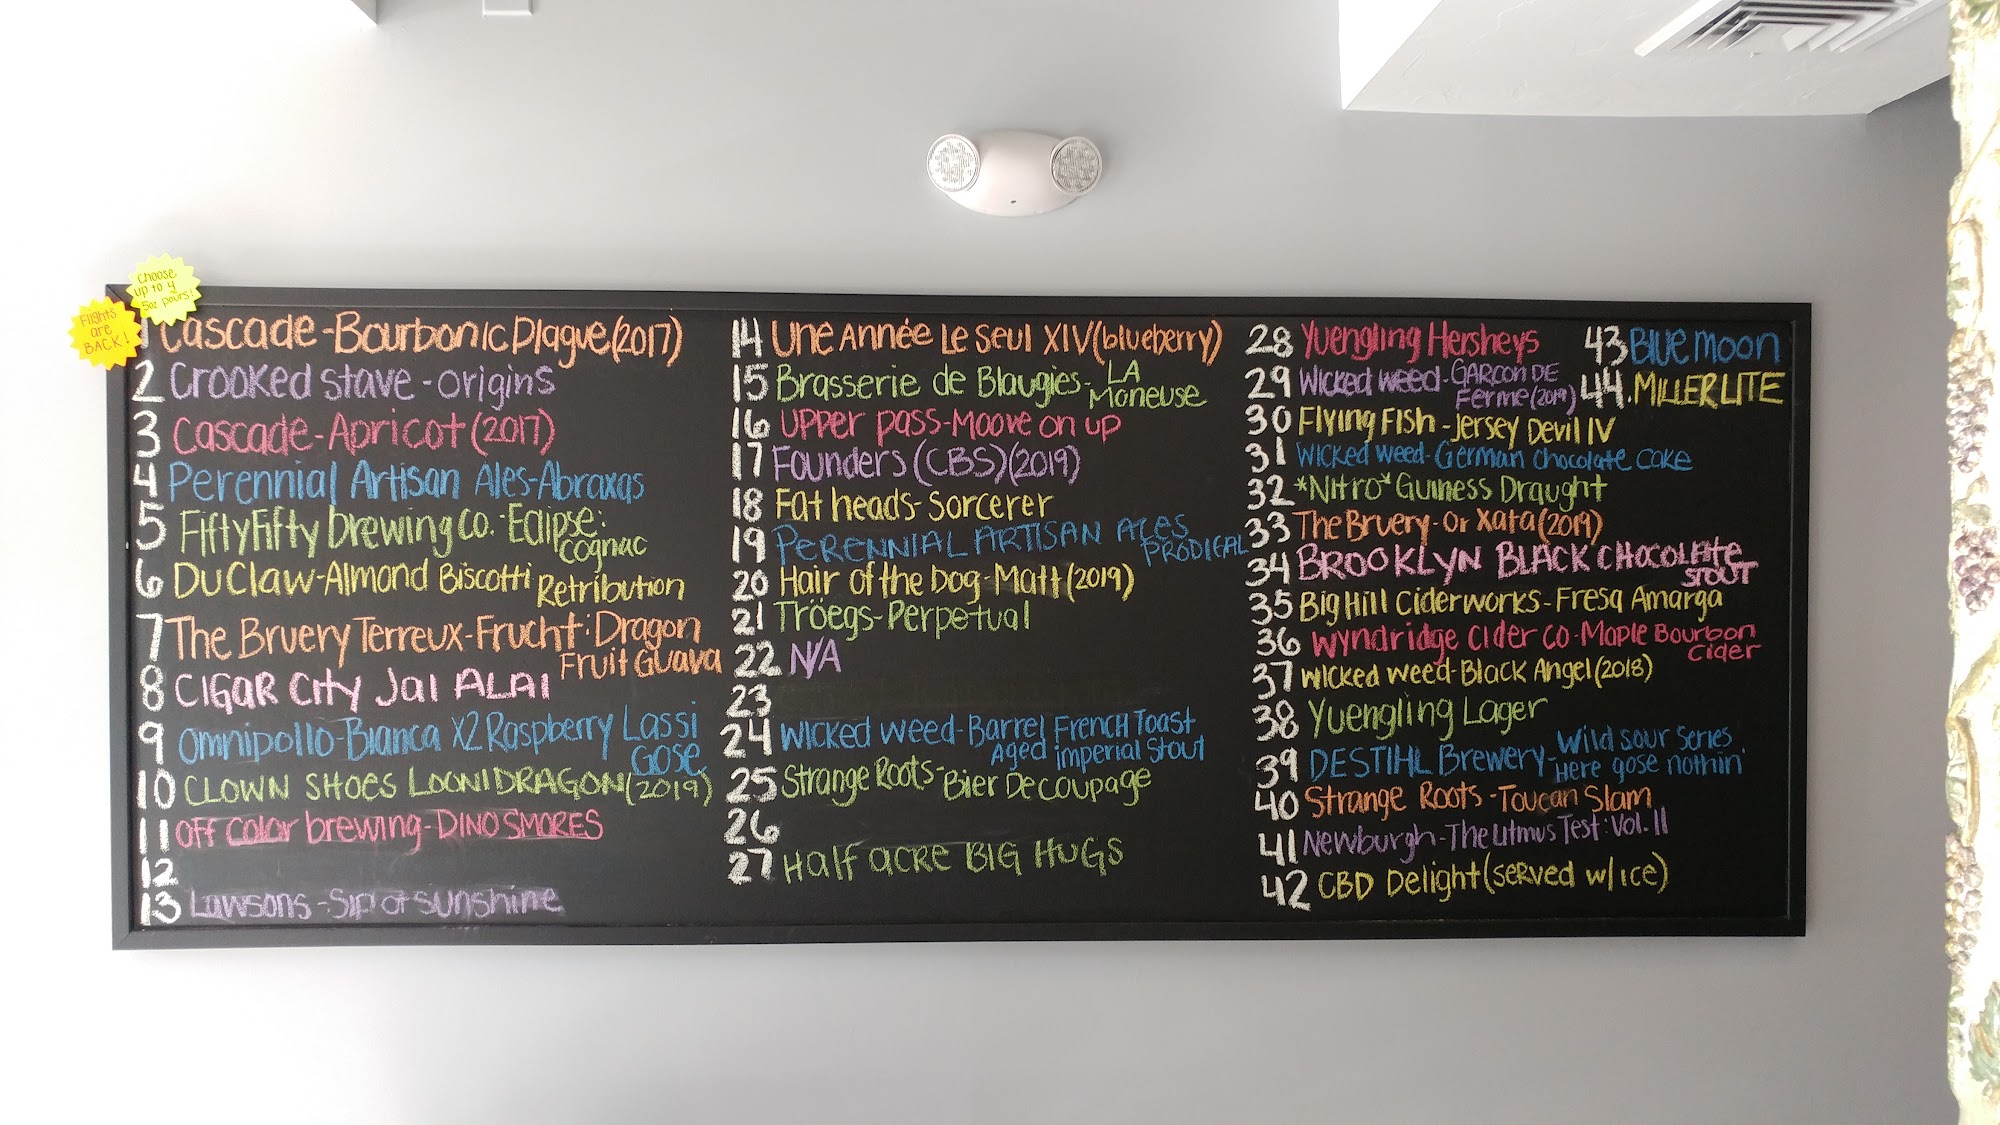 Choose
up to 4
5oz pours!
Flights
are
BACK!
1 Cascade-Bourbonic Plague(2017)
2 Crooked Stave-Origins
3 Cascade-Apricot(2017)
4 Perennial Artisan Ales-Abraxas
5 FiftyFifty brewing co.-Eclipse:
cognac
6 DuClaw-Almond Biscotti Retribution
7 The Bruery Terreux-Frucht: Dragon
Fruit Guava
8 CIGAR CITY Jai ALAI
9 Omnipollo-Bianca X2 Raspberry Lassi
Gose
10 CLOWN SHOES LOONIDRAGON(2019)
11 Off Color brewing-DINO SMORES
12
13 Lawsons-Sip of Sunshine
14 Une Année Le Seul XIV(blueberry)
15 Brasserie de Blaugies-LA
Moneuse
16 Upper pass-Moove on up
17 Founders (CBS)(2019)
18 Fat heads-Sorcerer
19 PERENNIAL ARTISAN ALES
PRODIGAL
20 Hair of the Dog-Matt(2019)
21 Tröegs-Perpetual
22 N/A
23
24 Wicked Weed-Barrel French Toast
Aged imperial Stout
25 Strange Roots-Bier Decoupage
26
27 Half acre BIG HUGS
28 Yuengling Hersheys
29 Wicked Weed-GARCON DE
Ferme(2019)
30 Flying Fish-Jersey Devil IV
31 Wicked Weed-German Chocolate Cake
32 *Nitro* Guiness Draught
33 The Bruery-Or Xata(2019)
34 BROOKLYN BLACK CHOCOLATE
STOUT
35 Big Hill Ciderworks-Fresa Amarga
36 Wyndridge Cider Co-Maple Bourbon
Cider
37 Wicked Weed-Black Angel(2018)
38 Yuengling Lager
39 DESTIHL Brewery-Wild sour series
Here gose nothin'
40 Strange Roots-Toucan Slam
41 Newburgh-The Litmus Test: Vol. 11
42 CBD Delight(served w/ice)
43 Blue moon
44. MILLER LITE